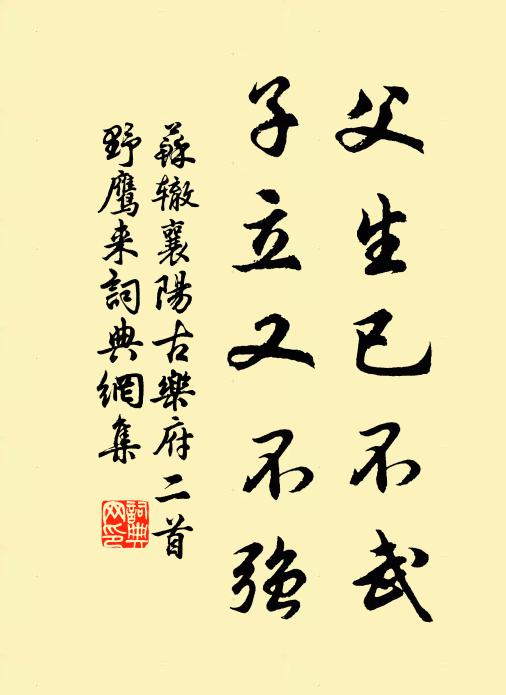 父生已不武
子立又不强
蘇辙襄陽古樂府二首
野鷹来詞典網集
詞典
网印